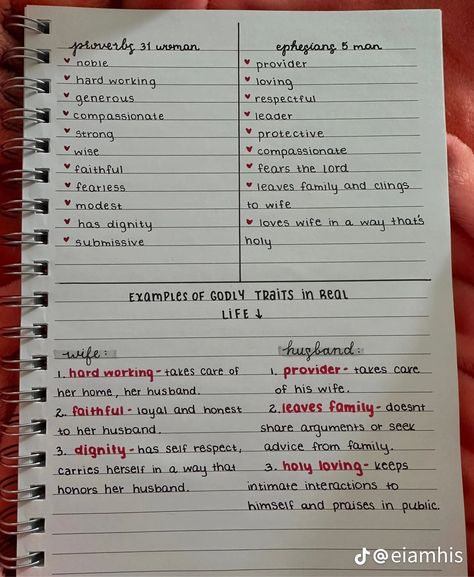 proverbs 31 woman
noble
hard working
generous
compassionate
strong
wise
faithful
fearless
modest
has dignity
submissive
ephesians 5 man
provider
loving
respectful
leader
protective
compassionate
fears the lord
leaves family and clings
to wife
loves wife in a way that's
holy
Examples of Godly Traits in Real
Life ↓
wife:
1. hard working - takes care of
her home, her husband.
2. faithful - loyal and honest
to her husband.
3. dignity - has self respect,
carries herself in a way that
honors her husband.
husband:
1. provider - takes care
of his wife.
2. leaves family - doesnt
share arguments or seek
advice from family.
3. holy loving - keeps
intimate interactions to
himself and praises in public.
@eiamhis